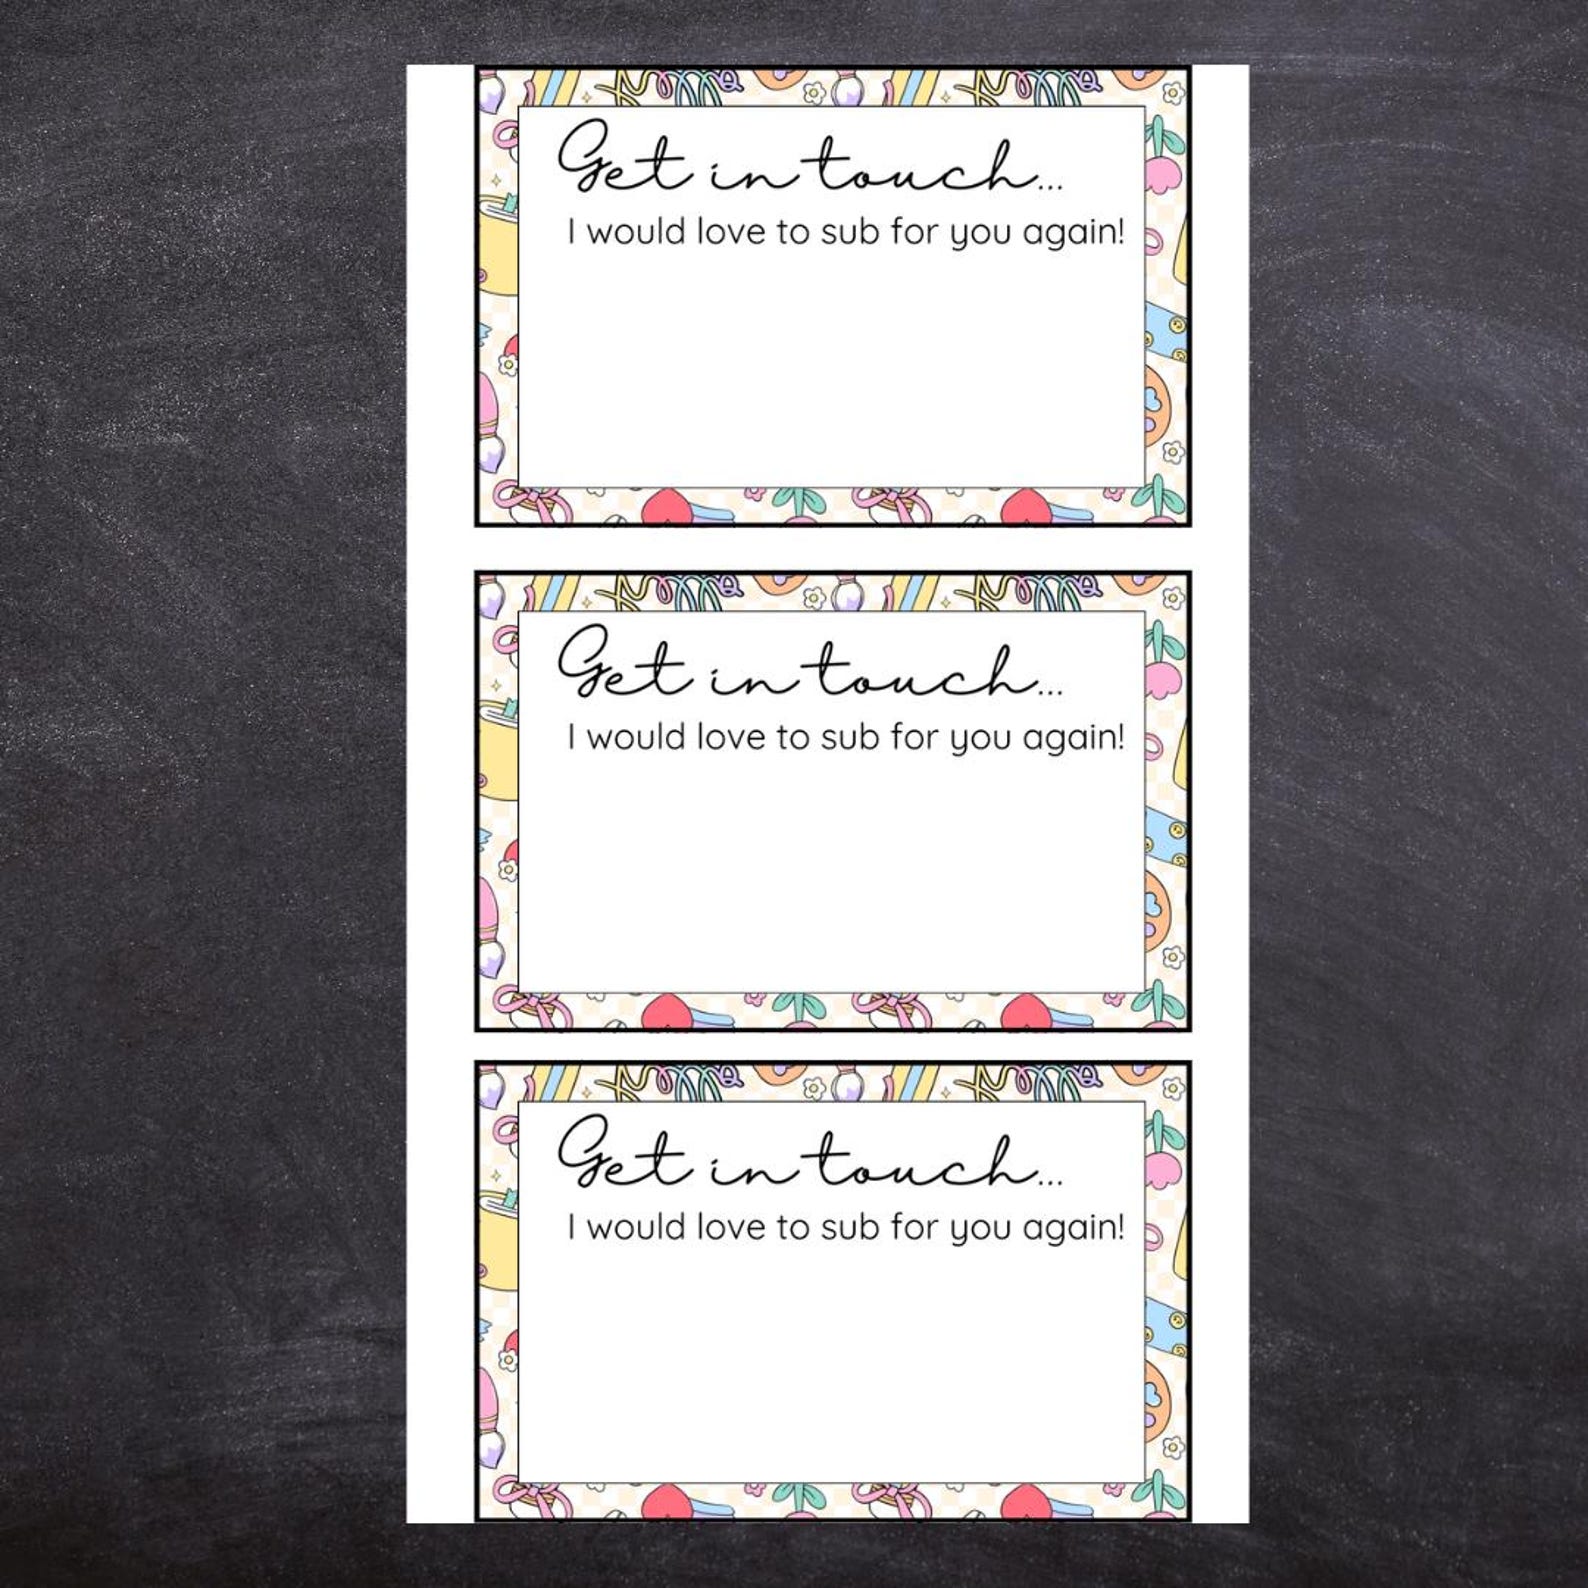 Get in touch...
I would love to sub for you again!
Get in touch...
I would love to sub for you again!
Get in touch...
I would love to sub for you again!